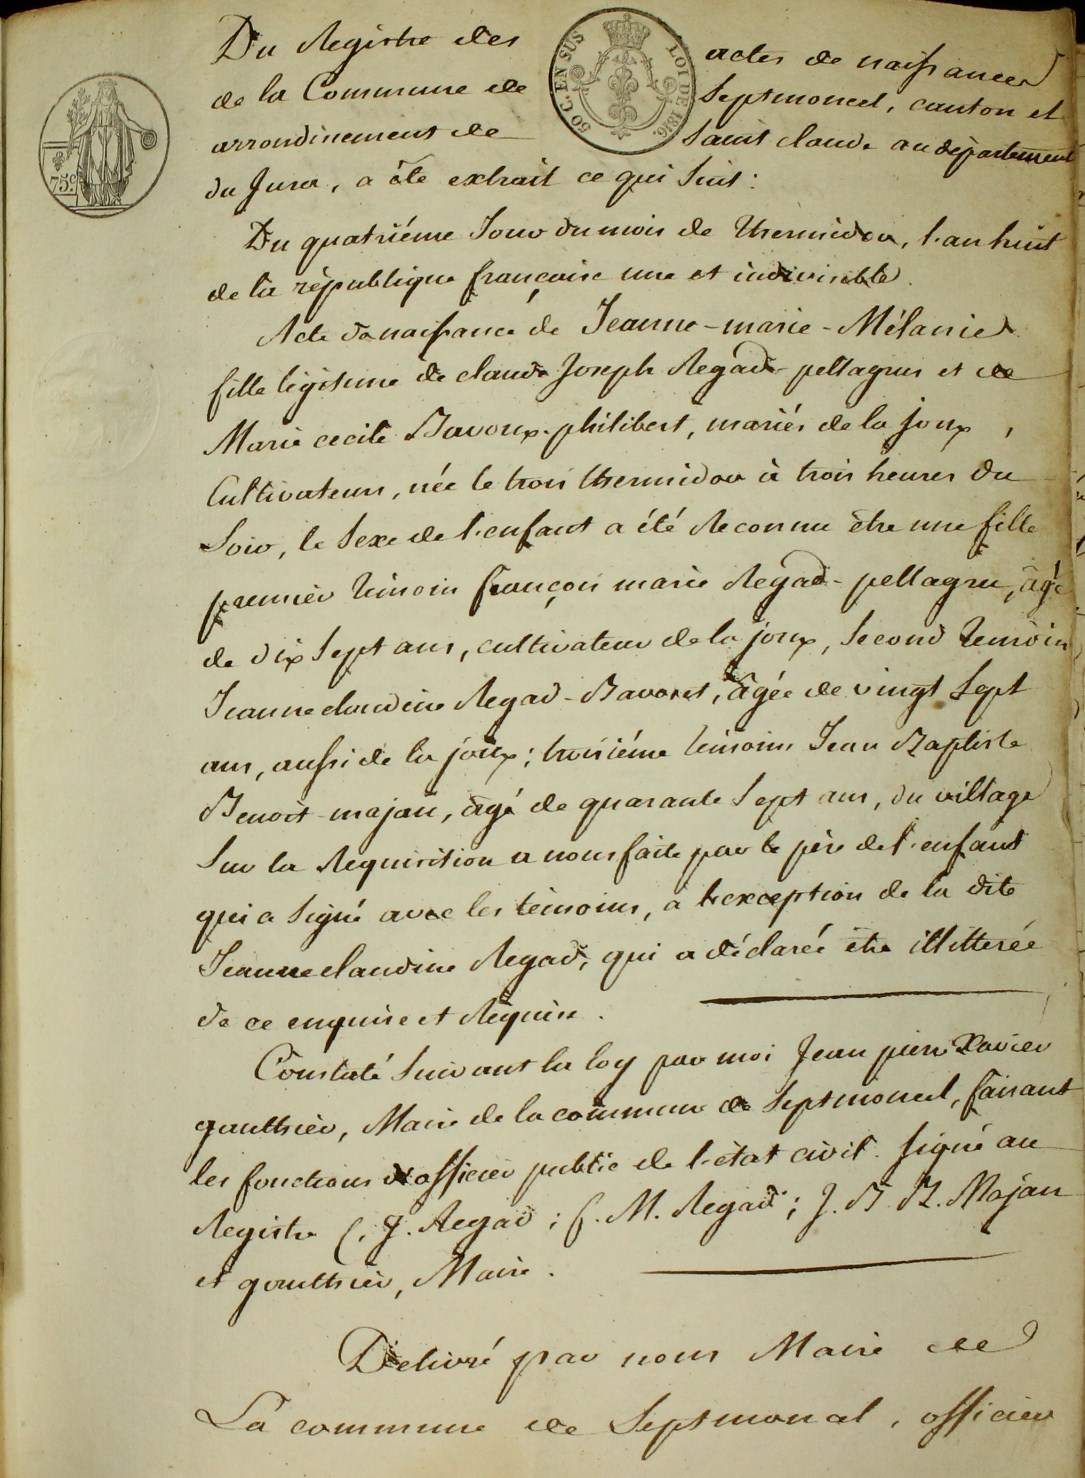 75c.
50 C. EN SUS LOI DE 1816.
Du Registre des actes de naissances
de la Commune de Septmoncel, canton et
arrondissement de Saint claude au département
du Jura, a été extrait ce qui suit :
Du quatriéme Jour du mois de thermidor, l'an huit
de la république française une et indivisible.
Acte de naissance de Jeanne-marie-Mélanie
fille légitime de claude Joseph Regad-pellagrus et de
Marie cecile Bavoux-philibert, mariés de la joux,
Cultivateurs, née le trois thermidor à trois heures du
Soir, le Sexe de l'enfant a été Reconnu être une fille
premier témoin françois marie Regad-pellagru, âgé
de dix Sept ans, cultivateur de la joux, Second temoin
Jeanne claudine Regad-Bavoret, âgée de vingt Sept
ans, aussi de la joux ; troisiéme témoins Jean Baptiste
Benoit-majan, âgé de quarante Sept ans, du village
Sur la Requisition a nous faite par le père de l'enfant
qui a Signé avec les témoins, à l'exception de la dite
Jeanne claudine Regad, qui a déclarée être illitterée
de ce enquise et Réquise.
Constaté Suivant la loy par moi Jean pierre Xavier
gauthier, Maire de la commune de Septmoncel, faisant
les fonctions d'officier public de l'état civil. Signé au
Registre C. J. Regad ; f. M. Regad ; J. B. B. Majan
et gauthier, Maire.
Délivré par nous Maire de
La commune de Septmoncel, officier